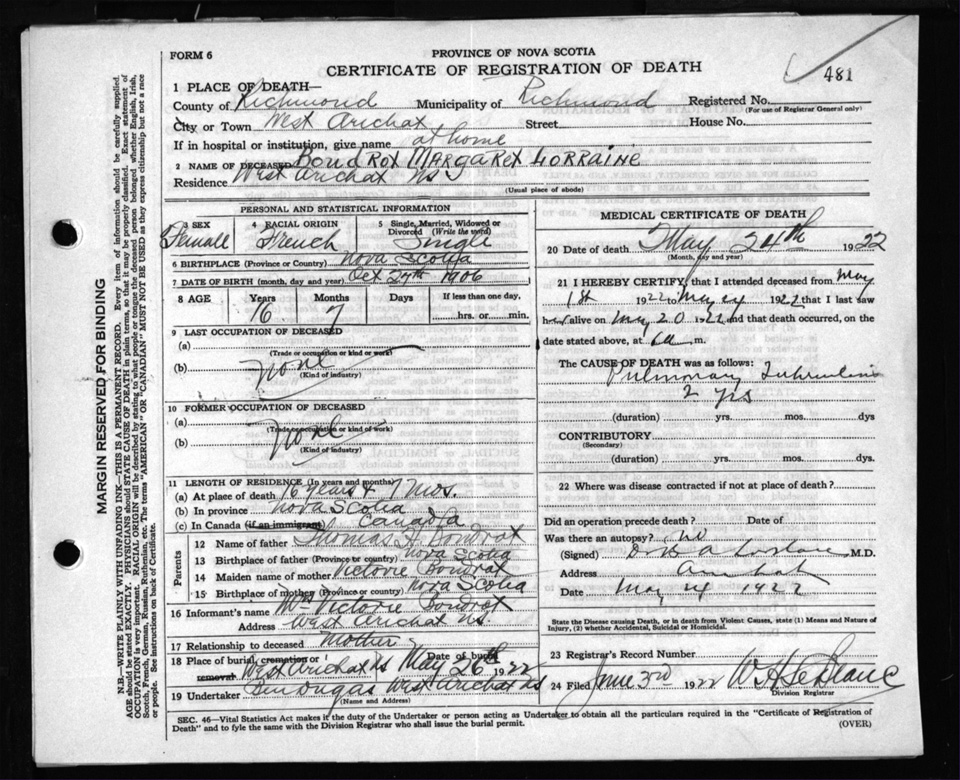 FORM 6
PROVINCE OF NOVA SCOTIA
CERTIFICATE OF REGISTRATION OF DEATH
481
1 PLACE OF DEATH—
County of Richmond Municipality of Richmond Registered No.
(For use of Registrar General only)
City or Town West Arichat Street House No.
If in hospital or institution, give name at home
2 NAME OF DECEASED Boudrot Margaret Lorraine
Residence West Arichat NS
(Usual place of abode)
PERSONAL AND STATISTICAL INFORMATION
3 SEX 4 RACIAL ORIGIN 5 Single, Married, Widowed or Divorced (Write the word)
Female French Single
6 BIRTHPLACE (Province or Country) Nova Scotia
7 DATE OF BIRTH (month, day, and year) Oct 27th 1906
8 AGE Years Months Days If less than one day,
16 7 hrs. or min.
9 LAST OCCUPATION OF DECEASED
(a)
(Trade or occupation or kind of work)
(b) None
(Kind of industry)
10 FORMER OCCUPATION OF DECEASED
(a)
(Trade or occupation or kind of work)
(b) None
(Kind of industry)
11 LENGTH OF RESIDENCE (In years and months)
(a) At place of death 16 years & 7 mos.
(b) In province Nova Scotia
(c) In Canada (if an immigrant) Canada
Parents
12 Name of father Thomas H. Boudrot
13 Birthplace of father (Province or country) Nova Scotia
14 Maiden name of mother Victorie Boudrot
15 Birthplace of mother (Province or country) Nova Scotia
16 Informant's name Victorie Boudrot
Address West Arichat NS.
17 Relationship to deceased Mother
18 Place of burial, cremation or removal West Arichat NS Date of burial May 26th 1922
19 Undertaker West Arichat NS
(Name and Address)
MEDICAL CERTIFICATE OF DEATH
20 Date of death May 24th 1922
(Month, day and year)
21 I HEREBY CERTIFY, that I attended deceased from May
1st 1922 to May 1922 that I last saw
her alive on May 20 1922 and that death occurred, on the
date stated above, at m.
The CAUSE OF DEATH was as follows:
Pulmonary Tuberculosis
2 yrs
(duration) yrs. mos. dys
CONTRIBUTORY
(Secondary)
(duration) yrs. mos. dys.
22 Where was disease contracted if not at place of death?
Did an operation precede death? Date of
Was there an autopsy? no
(Signed) M.D.
Address Arichat
Date May 24 1922
State the Disease causing Death, or in death from Violent Causes, state (1) Means and Nature of Injury, (2) whether Accidental, Suicidal or Homicidal.
23 Registrar's Record Number
24 Filed June 3rd 1922 W. H. LeBlanc
Division Registrar
SEC. 46—Vital Statistics Act makes it the duty of the Undertaker or person acting as Undertaker to obtain all the particulars required in the "Certificate of Registration of
Death" and to fyle the same with the Division Registrar who shall issue the burial permit.
(OVER)
MARGIN RESERVED FOR BINDING
N.B.—WRITE PLAINLY WITH UNFADING INK—THIS IS A PERMANENT RECORD. Every item of information should be carefully supplied.
AGE should be stated EXACTLY. PHYSICIANS should STATE CAUSE OF DEATH in plain terms, so that it may be properly classified. Exact statement of
OCCUPATION is very important. RACIAL ORIGIN will be described by stating to what people or tongue the deceased person belonged whether English, Irish,
Scotch, French, German, Russian, Ruthenian, etc. The terms "AMERICAN" OR "CANADIAN" MUST NOT BE USED as they express citizenship but not a race
or people. See instructions on back of Certificate.